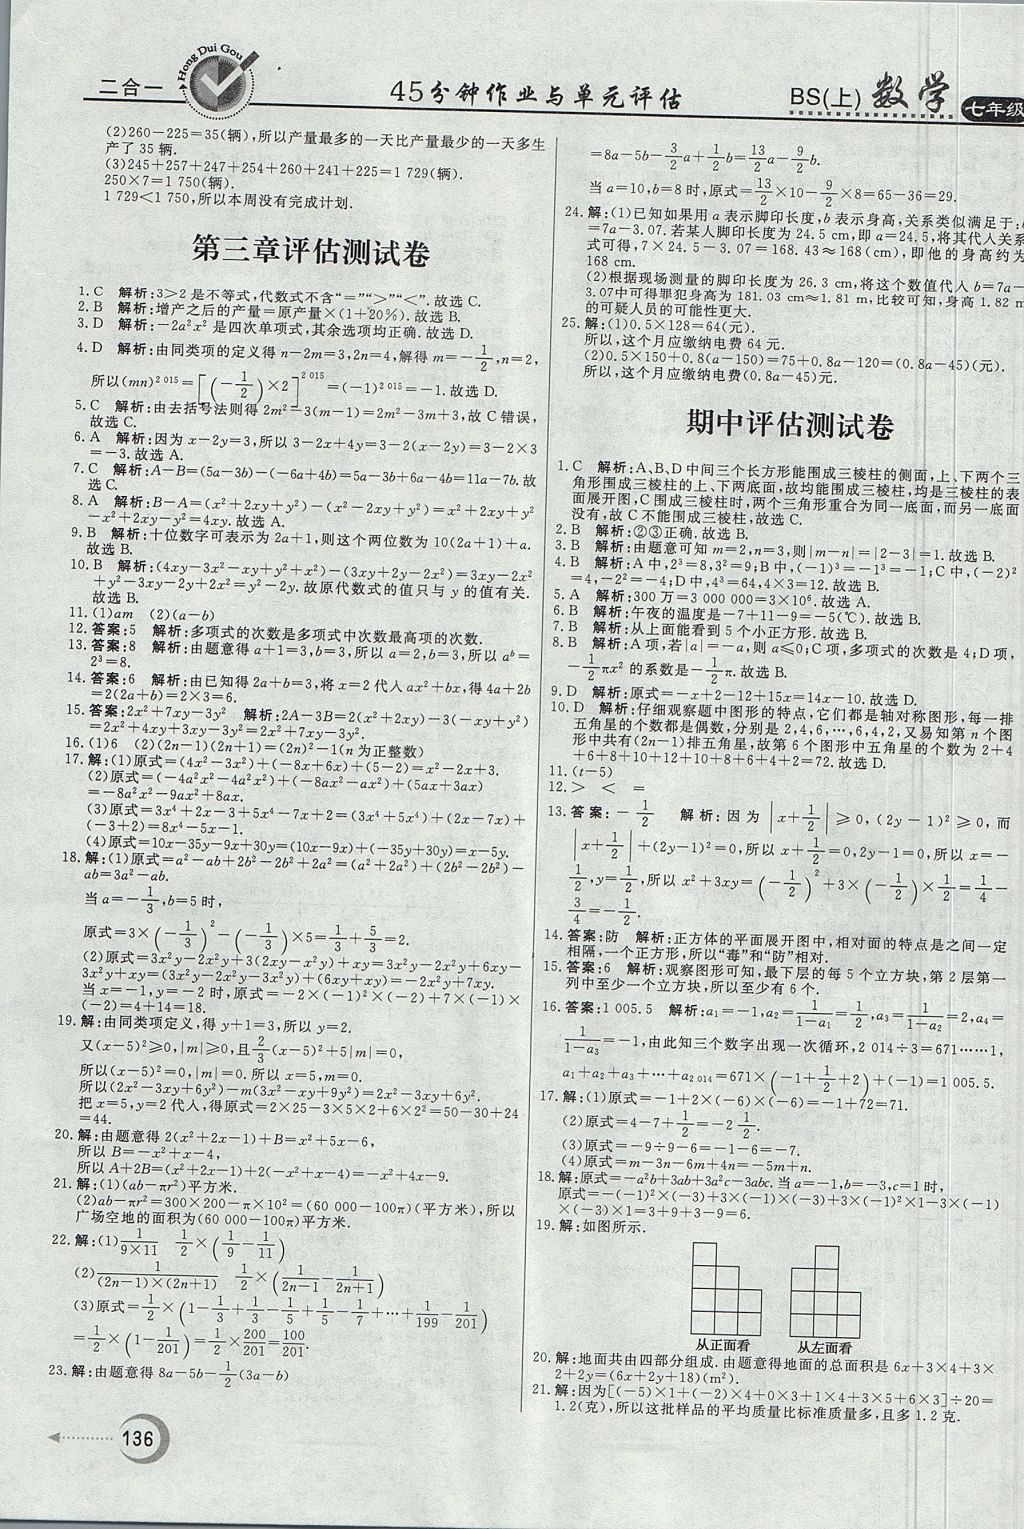 二合一
Hong Dui Gou
45分钟作业与单元评估
BS(上) 数学 七年级
(2)260-225=35(辆),所以产量最多的一天比产量最少的一天多生
产了35辆.
(3)245+257+247+254+260+241+225=1 729(辆).
250×7=1 750(辆).
1 729<1 750,所以本周没有完成计划.
第三章评估测试卷
1. C 解析:3>2是不等式,代数式不含“=”“>”“<”.故选C.
2. B 解析:增产之后的产量=原产量×(1+20%).故选B.
3. D 解析:-2a²x²是四次单项式,其余选项均正确.故选D.
4. D 解析:由同类项的定义得n-2m=3,2n=4,解得m=-1/2,n=2,
所以(mn)^2 015=[(-1/2)×2]^2 015=(-1)^2 015=-1.故选D.
5. C 解析:由去括号法则得2m²-3(m-1)=2m²-3m+3,故C错误,
故选C.
6. A 解析:因为x-2y=3,所以3-2x+4y=3-2(x-2y)=3-2×3
=-3.故选A.
7. C 解析:A-B=(5a-3b)-(-6a+4b)=5a-3b+6a-4b=11a-7b.故
选C.
8. A 解析:B-A=(x²+2xy+y²)-(x²-2xy+y²)=x²+2xy+y²
-x²+2xy-y²=4xy.故选A.
9. B 解析:十位数字可表示为2a+1,则这个两位数为10(2a+1)+a.
故选B.
10. B 解析:(4xy-3x²-xy+y²+x²)-(3xy+2y-2x²)=3xy-2x²
+y²-3xy-2y+2x²=y²-2y.故原代数式的值只与y的值有关.
故选B.
11. (1)am (2)(a-b)
12. 答案:5 解析:多项式的次数是多项式中次数最高项的次数.
13. 答案:8 解析:由题意得a+1=3,b=3,所以a=2,b=3,所以a^b=
2³=8.
14. 答案:6 解析:由已知得2a+b=3,将x=2代入ax²+bx,得4a+2b
=2(2a+b)=2×3=6.
15. 答案:2x²+7xy-3y² 解析:2A-3B=2(x²+2xy)-3(-xy+y²)
=2x²+4xy+3xy-3y²=2x²+7xy-3y².
16. (1)6 (2)(2n-1)(2n+1)=(2n)²-1(n为正整数)
17. 解:(1)原式=(4x²-3x²)+(-8x+6x)+(5-2)=x²-2x+3.
(2)原式=(-4a²x²-4a²x²)+(-8ax²-ax²)+(5ax+3ax)
=-8a²x²-9ax²+8ax.
(3)原式=3x⁴+2x-3+5x⁴-7x+2=(3x⁴+5x⁴)+(2x-7x)+
(-3+2)=8x⁴-5x-1.
(4)原式=10x-35y-9x+30y=(10x-9x)+(-35y+30y)=x-5y.
18. 解:(1)原式=a²-ab+2b²-2b²+2a²=(a²+2a²)+(2b²-2b²)-
ab=3a²-ab.
当a=-1/3,b=5时,
原式=3×(-1/3)²-(-1/3)×5=1/3+5/3=2.
(2)原式=3x²y-2x²y+3(2xy-x²y)+xy=3x²y-2x²y+6xy-
3x²y+xy=(3x²y-2x²y-3x²y)+(6xy+xy)=-2x²y+7xy.
当x=-1,y=-2时,原式=-2×(-1)²×(-2)+7×(-1)×
(-2)=4+14=18.
19. 解:由同类项定义,得y+1=3,所以y=2.
又(x-5)²≥0,|m|≥0,且2/3(x-5)²+5|m|=0,
所以(x-5)²=0,|m|=0.所以x=5,m=0.
所以(2x²-3xy+6y²)-m(3x²-xy+9y²)=2x²-3xy+6y².
把x=5,y=2代入,得原式=2×25-3×5×2+6×2²=50-30+24
=44.
20. 解:由题意得2(x²+2x-1)+B=x²+5x-6,
所以B=-x²+x-4,
所以A+2B=(x²+2x-1)+2(-x²+x-4)=-x²+4x-9.
21. 解:(1)(ab-πr²)平方米.
(2)ab-πr²=300×200-π×10²=(60 000-100π)(平方米),所以
广场空地的面积为(60 000-100π)平方米.
22. 解:(1)1/(9×11) 1/2×(1/9-1/11)
(2)1/((2n-1)×(2n+1)) 1/2×(1/(2n-1)-1/(2n+1))
(3)原式=1/2×(1-1/3+1/3-1/5+1/5-1/7+…+1/199-1/201)
=1/2×(1-1/201)=1/2×200/201=100/201.
23. 解:由题意得8a-5b-1/2(3a-b)
136
=8a-5b-3/2a+1/2b=13/2a-9/2b.
当a=10,b=8时,原式=13/2×10-9/2×8=65-36=29.
24. 解:(1)已知如果用a表示脚印长度,b表示身高,关系类似满足于:b
=7a-3.07.若某人脚印长度为24.5 cm,即a=24.5,将其代入关系
式可得,7×24.5-3.07=168.43≈168(cm),即他的身高约为
168 cm.
(2)根据现场测量的脚印长度为26.3 cm,将这个数值代入b=7a-
3.07中可得罪犯身高为181.03 cm≈1.81 m,比较可知,身高1.82 m
的可疑人员的可能性更大.
25. 解:(1)0.5×128=64(元).
所以,这个月应缴纳电费64元.
(2)0.5×150+0.8(a-150)=75+0.8a-120=(0.8a-45)(元).
所以,这个月应缴纳电费(0.8a-45)元.
期中评估测试卷
1. C 解析:A、B、D中间三个长方形能围成三棱柱的侧面,上、下两个三
角形围成三棱柱的上、下两底面,故均能围成三棱柱,均是三棱柱的表
面展开图,C围成三棱柱时,两个三角形重合为同一底面,而另一底面
没有,故C不能围成三棱柱.故选C.
2. B 解析:②③正确.故选B.
3. B 解析:由题意可知m=2,n=3,则|m-n|=|2-3|=1.故选B.
4. B 解析:A中,2³=8,3²=9;B中,(-1)³=-1³=-1;C中,(-2)²
=4,-2²=-4;D中,4³=64,4×3=12.故选B.
5. A 解析:300万=3 000 000=3×10⁶.故选A.
6. B 解析:午夜的温度是-7+11-9=-5(℃).故选B.
7. B 解析:从上面能看到5个小正方形.故选B.
8. B 解析:A项,若|a|=-a,则a≤0;C项,多项式的次数是4;D项,
-1/2πx²的系数是-1/2π.故选B.
9. D 解析:原式=-x+2-12+15x=14x-10.故选D.
10. D 解析:仔细观察题中图形的特点,它们都是轴对称图形,每一排
五角星的个数都是偶数,分别是2,4,6,…,6,4,2,又易知第n个图
形中共有(2n-1)排五角星,故第6个图形中五角星的个数为2+4
+6+8+10+12+10+8+6+4+2=72.故选D.
11. (t-5)
12. > < =
13. 答案:-1/2 解析:因为|x+1/2|≥0,(2y-1)²≥0,而
|x+1/2|+(2y-1)²=0,所以x+1/2=0,2y-1=0,所以x=-
1/2,y=1/2,所以x²+3xy=(-1/2)²+3×(-1/2)×1/2=1/4-
3/4=-1/2.
14. 答案:防 解析:正方体的平面展开图中,相对面的特点是之间一定
相隔,一个正方形,所以“毒”和“防”相对.
15. 答案:6 解析:观察图形可知,最下层的每5个立方块,第2层第一
列中至少一个立方块,所以至少有6个.
16. 答案:1 005.5 解析:a₁=-1,a₂=1/(1-a₁)=1/2,a₃=1/(1-a₂)=2,a₄=
1/(1-a₃)=-1,由此知三个数字出现一次循环,2 014÷3=671……1,
a₁+a₂+a₃+…+a₂₀₁₄=671×(-1+1/2+2)+(-1)=1 005.5.
17. 解:(1)原式=-1+2×(-6)×(-6)=-1+72=71.
(2)原式=4-7+1/2=-2 1/2.
(3)原式=-9÷9-6=-1-6=-7.
(4)原式=m-3n-6m+4n=-5m+n.
18. 解:原式=-a²b+3ab+3a²c-3abc.当a=-1,b=-3,c=1时,
原式=-(-1)²×(-3)+3×(-1)×(-3)+3×(-1)²×1-3×(-1)
×(-3)×1=3+9+3-9=6.
19. 解:如图所示.
从正面看 从左面看
20. 解:地面共由四部分组成.由题意得地面的总面积是6x+3×4+3×
2+2y=(6x+2y+18)(m²).
21. 解:因为[(-5)×1+(-2)×4+0×3+1×4+3×5+6×3]÷20=
1.2(克),所以这批样品的平均质量比标准质量多,且多1.2克.